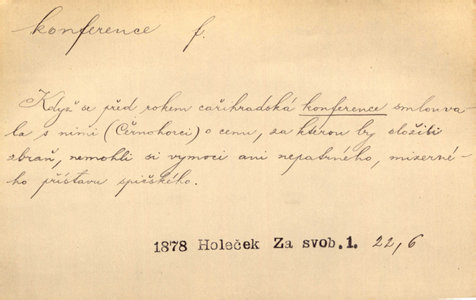 konference f.
Když se před rokem cařihradská konference smlouva-
la s nimi (Černohorci) o cenu, za kterou by složili
zbraň, nemohli si vymoci ani nepatrného, mizerné-
ho přístavu spičského.
1878 Holeček Za svob. 1. 22, 6